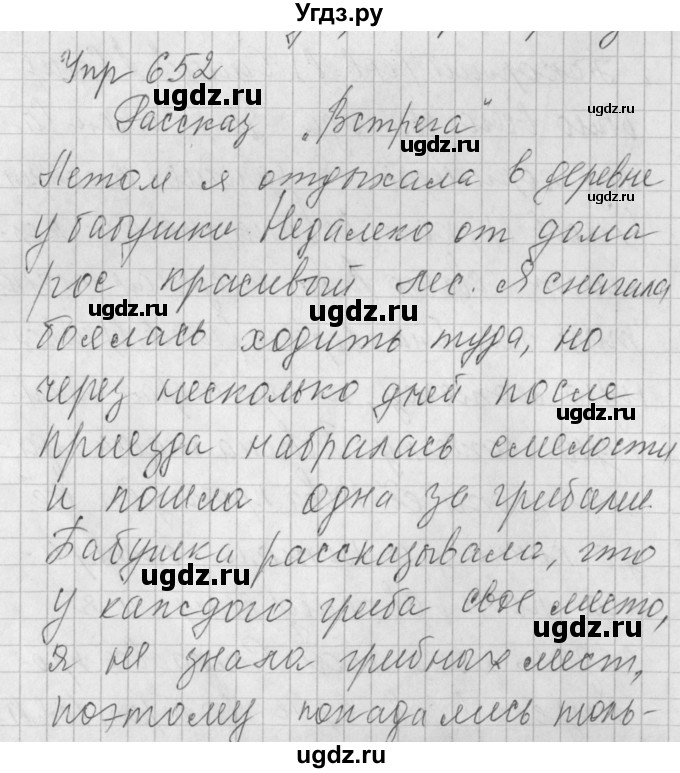 Угдз.ру
Упр 652
ugdz.ru
ugdz.ru
Рассказ „Встреча"
ugdz.ru
Летом я отдыхала в деревне
ugdz.ru
у бабушки. Недалеко от дома
рос красивый лес. Я сначала
ugdz.ru
ugdz.ru
боялась ходить туда, но
через несколько дней после
ugdz.ru
приезда набралась смелости
и пошла одна за грибами.
ugdz.ru
Бабушка рассказывала, что
ugdz.ru
у каждого гриба свое место,
ugdz.ru
я не знала грибных мест,
поэтому попадались толь-
ugdz.ru